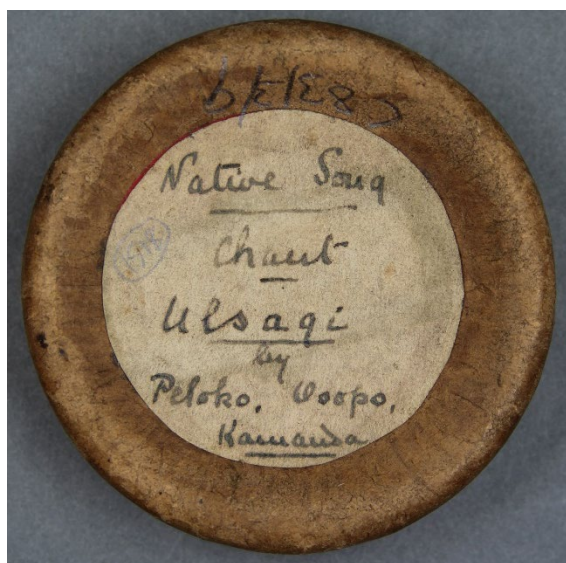 Native Song
Chant
Ulsagi
by
Peloko, Osopo,
Kamanda